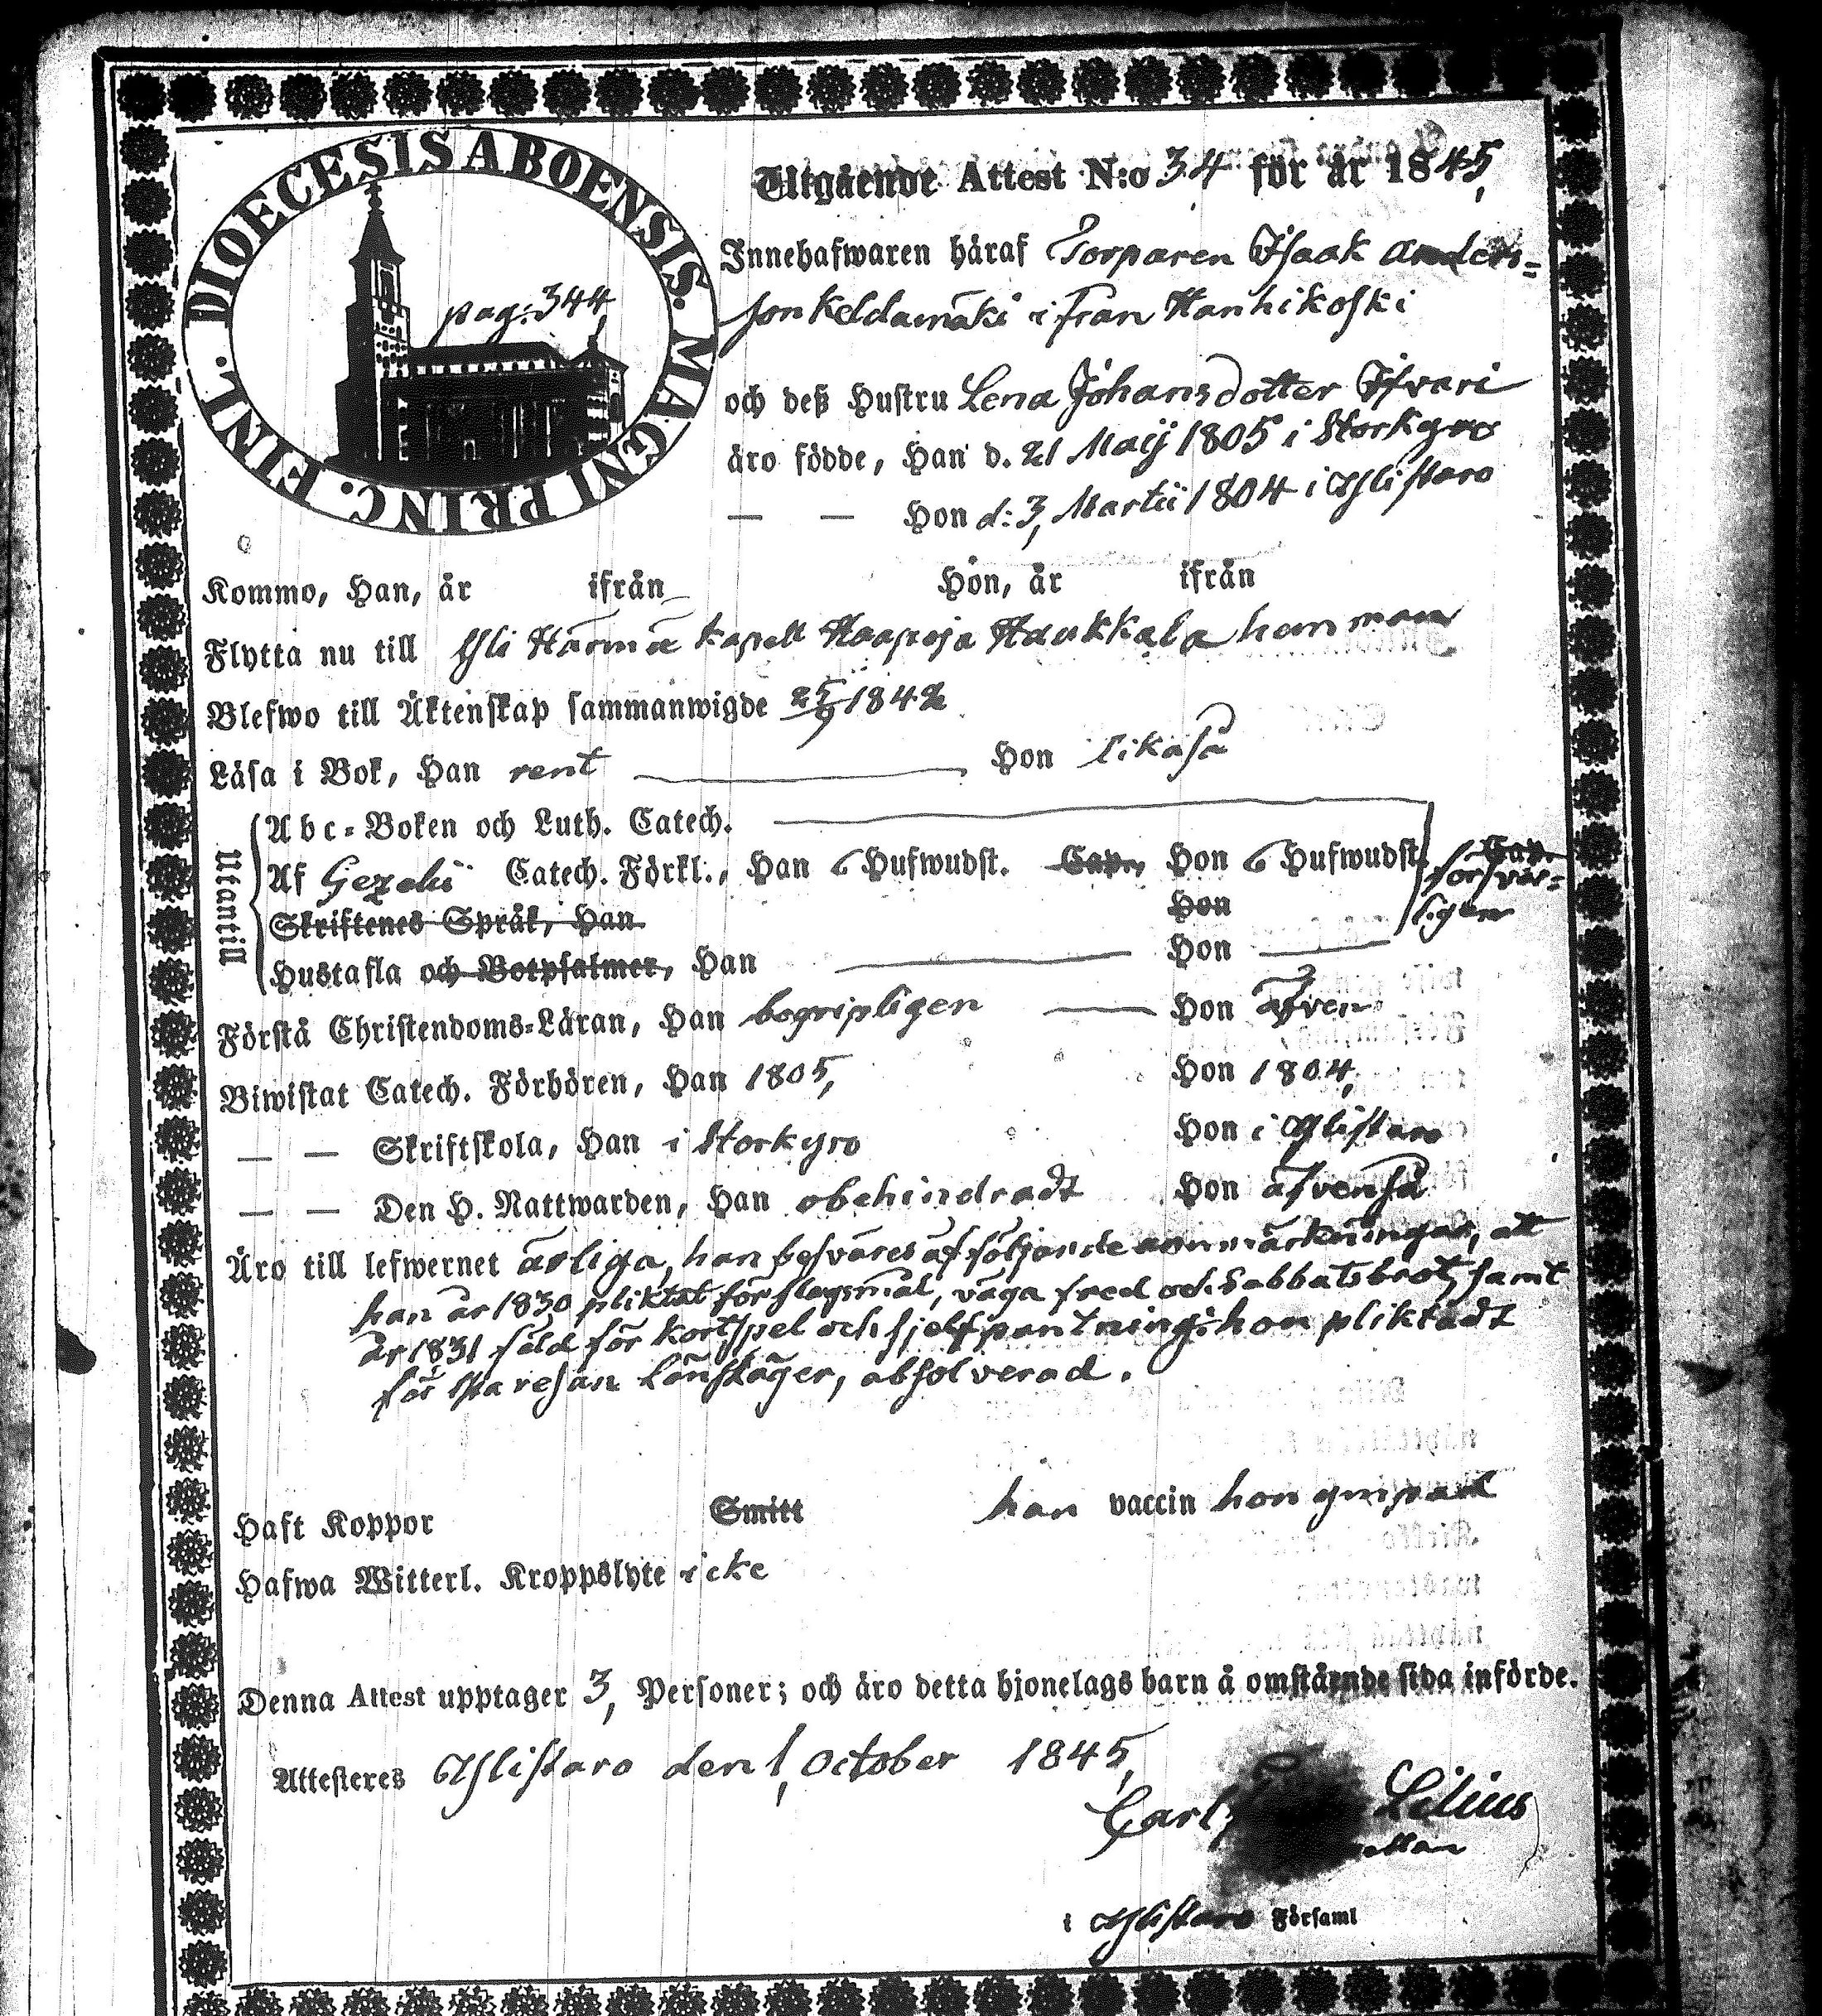 DIOECESIS ABOENSIS. MAGNI PRINC. FINL.
pag: 344,
Utgående Attest N:o 34 för år 1845,
Innehafwaren häraf Torparen Isaak Anders=
son Keldamäki ifrån Hanhikoski
och deß Hustru Lena Johansdotter Isvari
äro födde, Han d. 21 Maij 1805 i Storkyro
— — Hon d: 3, Martii 1804 i Ylistaro
Kommo, Han, år ifrån Hon, år ifrån
Flytta nu till Yli Härmä kapell Haapoja Haukkala hemman
Blefwo till Äktenskap sammanwigde 25/9 1842
Läsa i Bok, Han rent — Hon likaså
Utantill
Abc=Boken och Luth. Catech.
Af Gezelii Catech. Förkl., Han 6 Hufwudst. Cap., Hon 6 Hufwudst. Cap.
försvar=
ligen
Skriftenes Språk, Han Hon
Hustafla och Botpsalmer, Han — Hon —
Förstå Christendoms=Läran, Han begripligen — Hon äfven
Biwistat Catech. Förhören, Han 1805, Hon 1804,
— — Skriftskola, Han i Storkyro Hon i Ylistaro
— — Den H. Nattwarden, Han obehindradt Hon äfvenså
Äro till lefwernet ärliga, han besväres af följande anmärkningar, att
han år 1830 pliktat för slagsmål, våga fred och sabbatsbrot, samt
år 1831 fäld för kortspel och sjelfpantning: hon pliktadt
för lönskäger, absolverad.
Haft Koppor Smitt han vaccin hon
Hafwa Witterl. Kroppslyte icke
Denna Attest upptager 3, Personer; och äro detta hjonelags barn å omstående sida införde.
Attesteres Ylistaro den 1, October 1845,
Carl Lilius
i Ylistaro Församl